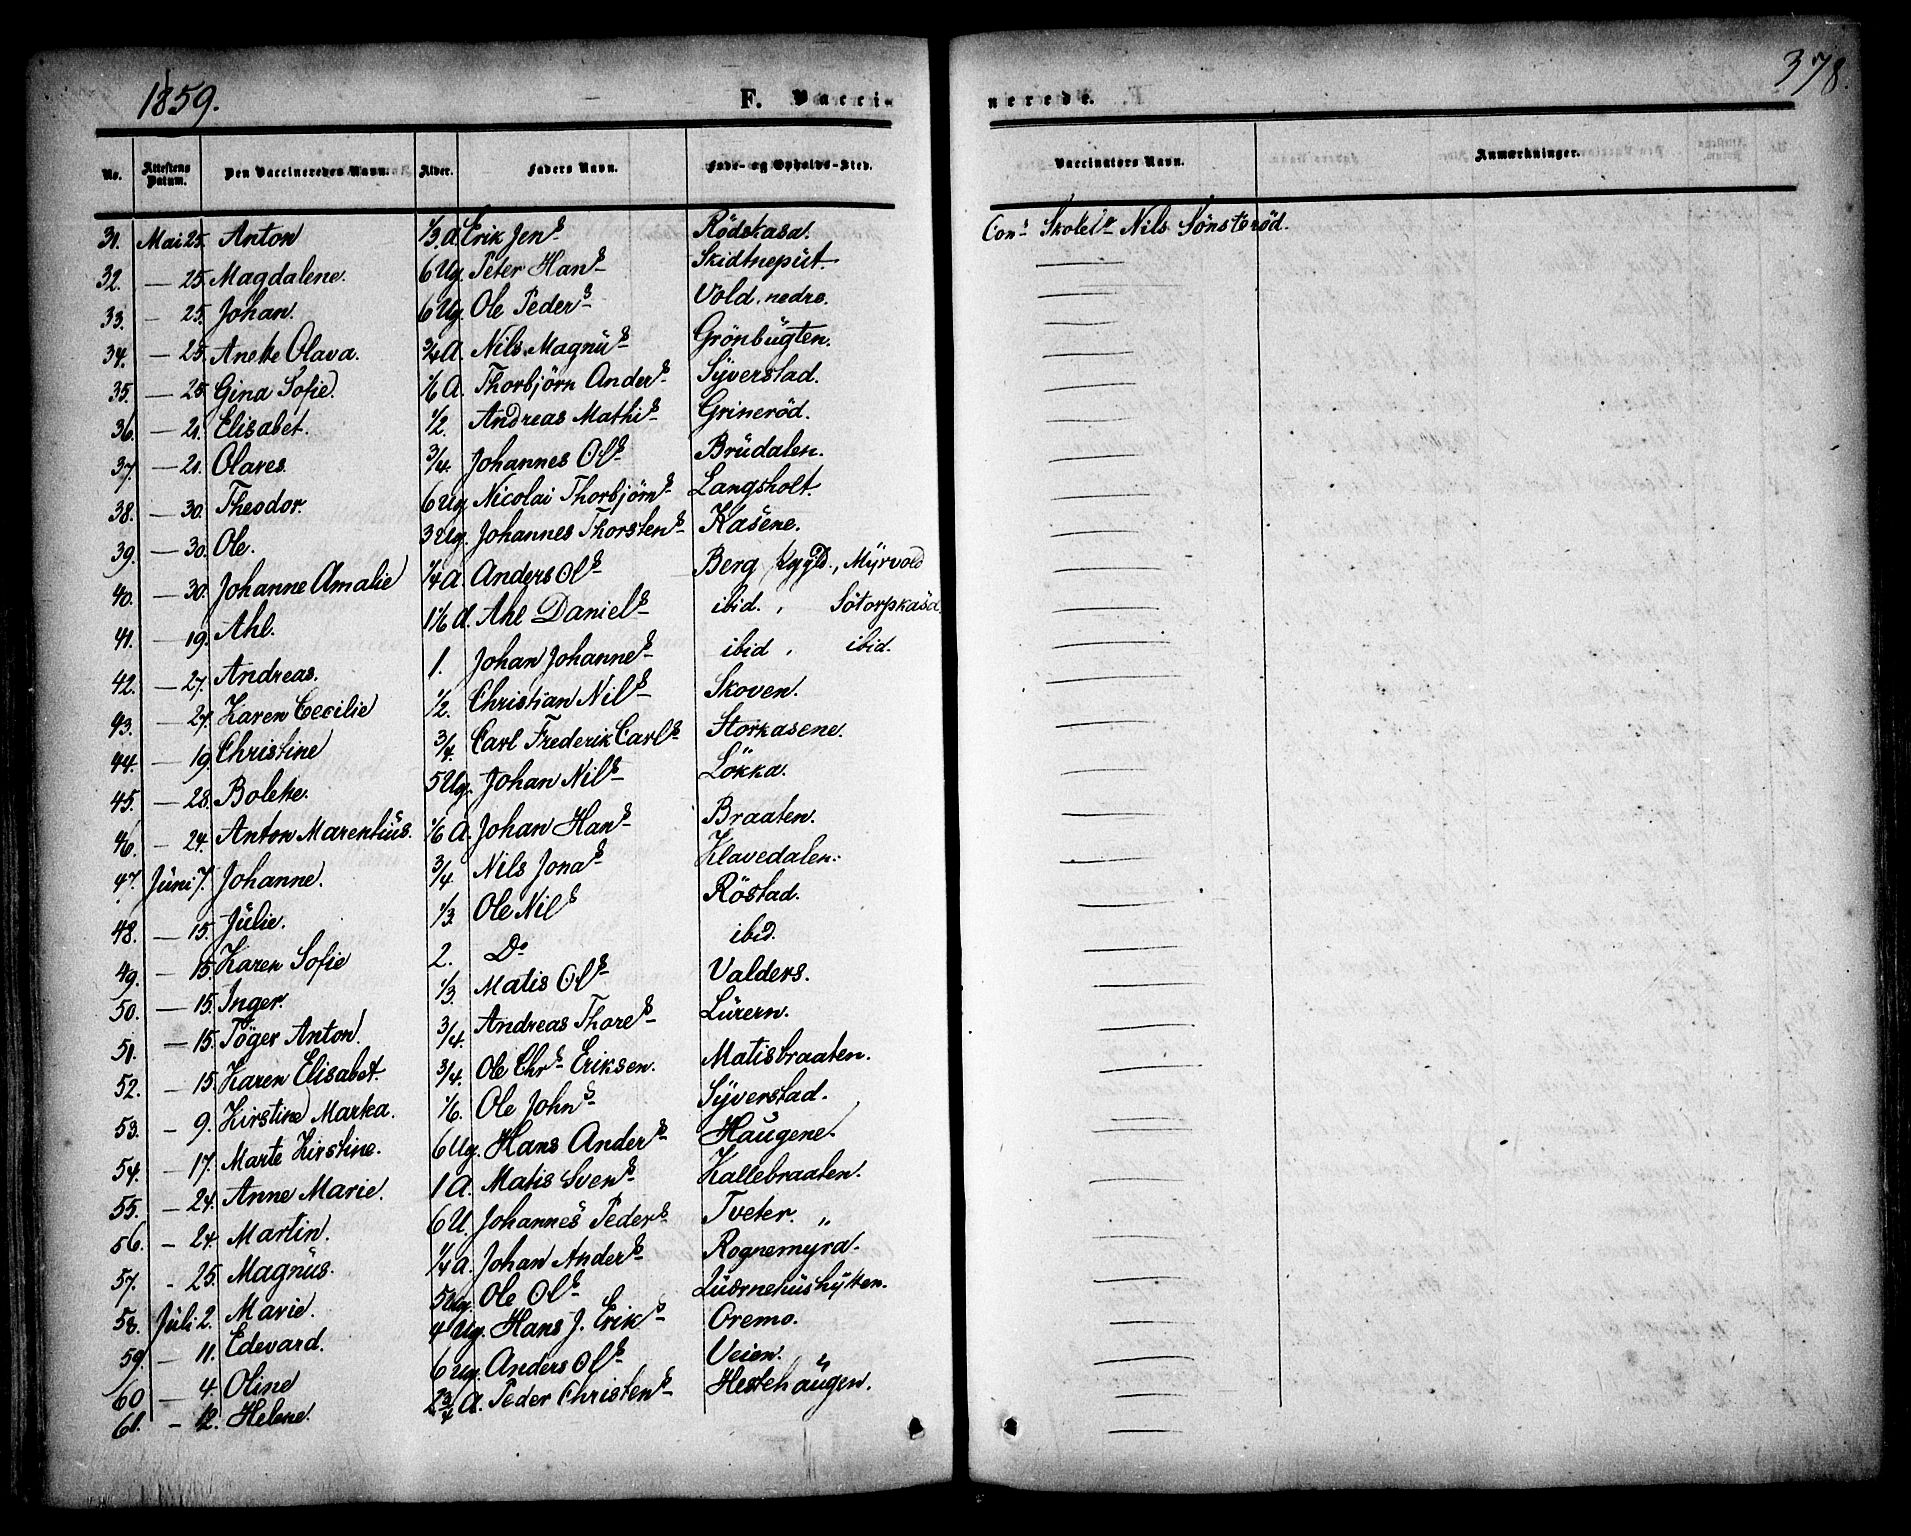 1859. F. Vacci-
nerede. 378.
No. Attestens Datum. Den Vaccineredes Navn. Alder. Faders Navn. Føde- og Opholds-Sted. Vaccinators Navn. Anmærkninger.
31. Mai 25. Anton 1/3 A Erik Jens Rödskasa. Cons Skolelr Nils Sönsteröd.
32. — 25. Magdalene. 6 Ug. Peter Hans Skidtneput. —
33. — 25. Johan. 6 Ug. Ole Peders Vold, nedre. —
34. — 25. Anette Olava. 3/4 A. Nils Magnus Grönbugten. —
35. — 25. Gina Sofie. 1/6 A. Thorbjörn Anders Syverstad. —
36. — 21. Elisabet. 1/2. Andreas Mathis Grineröd. —
37. — 21. Olaves. 3/4. Johannes Ols Brudalen. —
38. — 30. Theodor. 6 Ug. Nicolai Thorbjörns Langsholt. —
39. — 30. Ole. 3 Ug. Johannes Thorstens Kasene. —
40. — 30. Johanne Amalie 1/4 A. Anders Ols Berg Pggld., Myrvold —
41. — 19. Ahl. 1 1/6 A. Ahl Daniels ibid., Sötorpkasa. —
42. — 27. Andreas. 1. Johan Johannes ibid, ibid. —
43. — 27. Karen Cecilie 1/2. Christian Nils Skoven. —
44. — 19. Christine 3/4. Carl Frederik Carls Storkasene. —
45. — 28. Bolette. 5 Ug. Johan Nils Lökka. —
46. — 24. Anton Marentius. 1/6 A. Johan Hans Braaten. —
47. Juni 7. Johanne. 3/4. Nils Jonas Klavedalen. —
48. — 15. Julie. 1/3. Ole Nils Röstad. —
49. — 15. Karen Sofie 2. Do ibid. —
50. — 15. Inger. 1/3. Matis Ols Valders. —
51. — 15. Töger Anton. 3/4. Andreas Thores Lurern. —
52. — 15. Karen Elisabet. 3/4. Ole Chrs Eriksen. Matisbraaten. —
53. — 9. Kirstine Martea. 1/6. Ole Johns Syverstad. —
54. — 17. Marte Kirstine. 6 Ug. Hans Anders Haugene. —
55. — 24. Anne Marie. 1 A. Matis Svens Kallebraaten. —
56. — 24. Martin. 6 U. Johannes Peders Tveter. „ —
57. - 25. Magnus. 1/4 A. Johan Anders Rognemyra. —
58. Juli 2. Marie. 5 Ug. Ole Ols Luørnehushytten. —
59. — 11. Edevard. 4 Ug. Hans J. Eriks Oremo. —
60 — 4. Oline 6 Ug. Anders Ols Veien. „ —
61. - 12. Helene. 2 3/4 A. Peder Christens Hestehaugen. —